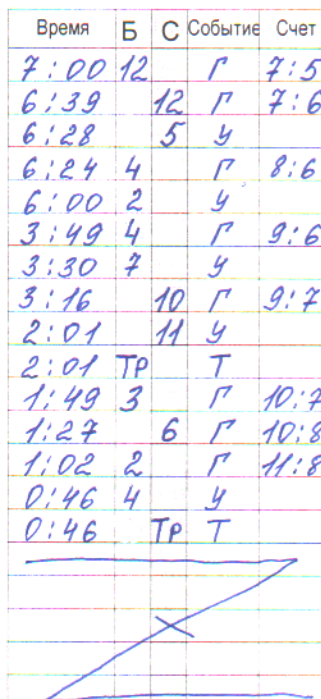 Время Б С Событие Счет
7:00 12 Г 7:5
6:39 12 Г 7:6
6:28 5 У
6:24 4 Г 8:6
6:00 2 У
3:49 4 Г 9:6
3:30 7 У
3:16 10 Г 9:7
2:01 11 У
2:01 ТР Т
1:49 3 Г 10:7
1:27 6 Г 10:8
1:02 2 Г 11:8
0:46 4 У
0:46 ТР Т